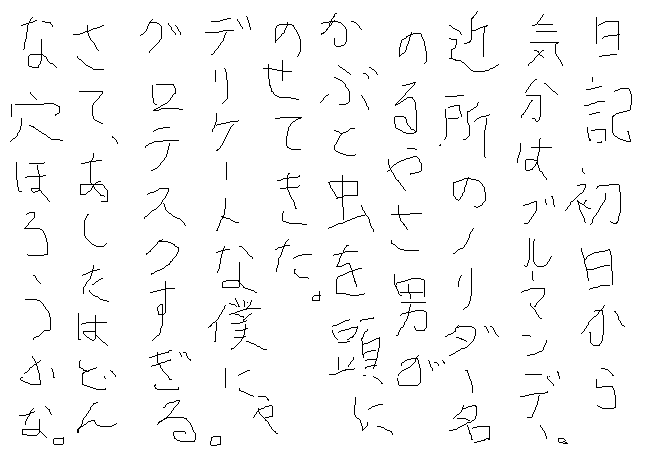 日記初日から
気分はブルーマンデー。
近所のノリダー名
のるやさ男が
かぶと虫を頭に
のせてきた。
デリケートな僕にゃ
グロテスクすぎる。
さて、あしたはどん
な穴ほろうかな。